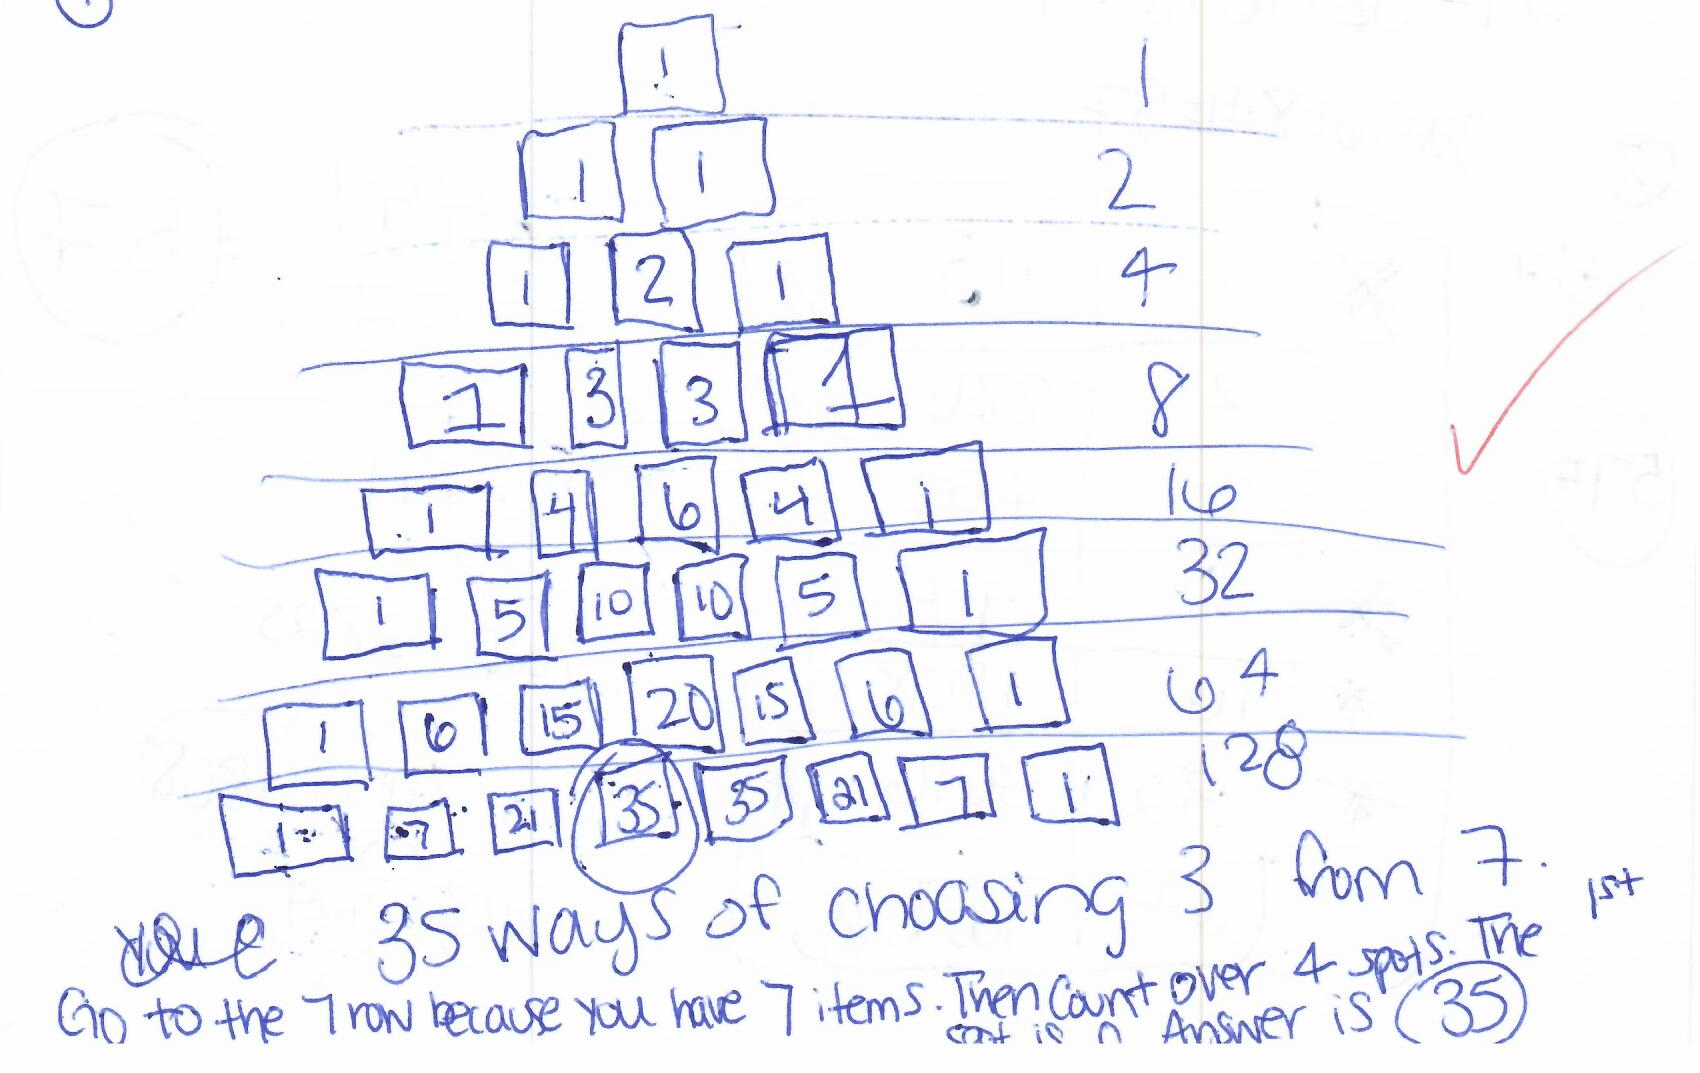 1 1
1 1 2
1 2 1 4
1 3 3 1 8
1 4 6 4 1 16
1 5 10 10 5 1 32
1 6 15 20 15 6 1 64
1 7 21 35 35 21 7 1 128
35 ways of choosing 3 from 7.
Go to the 7 row because you have 7 items. Then count over 4 spots. The 1st
spot is 0 Answer is 35